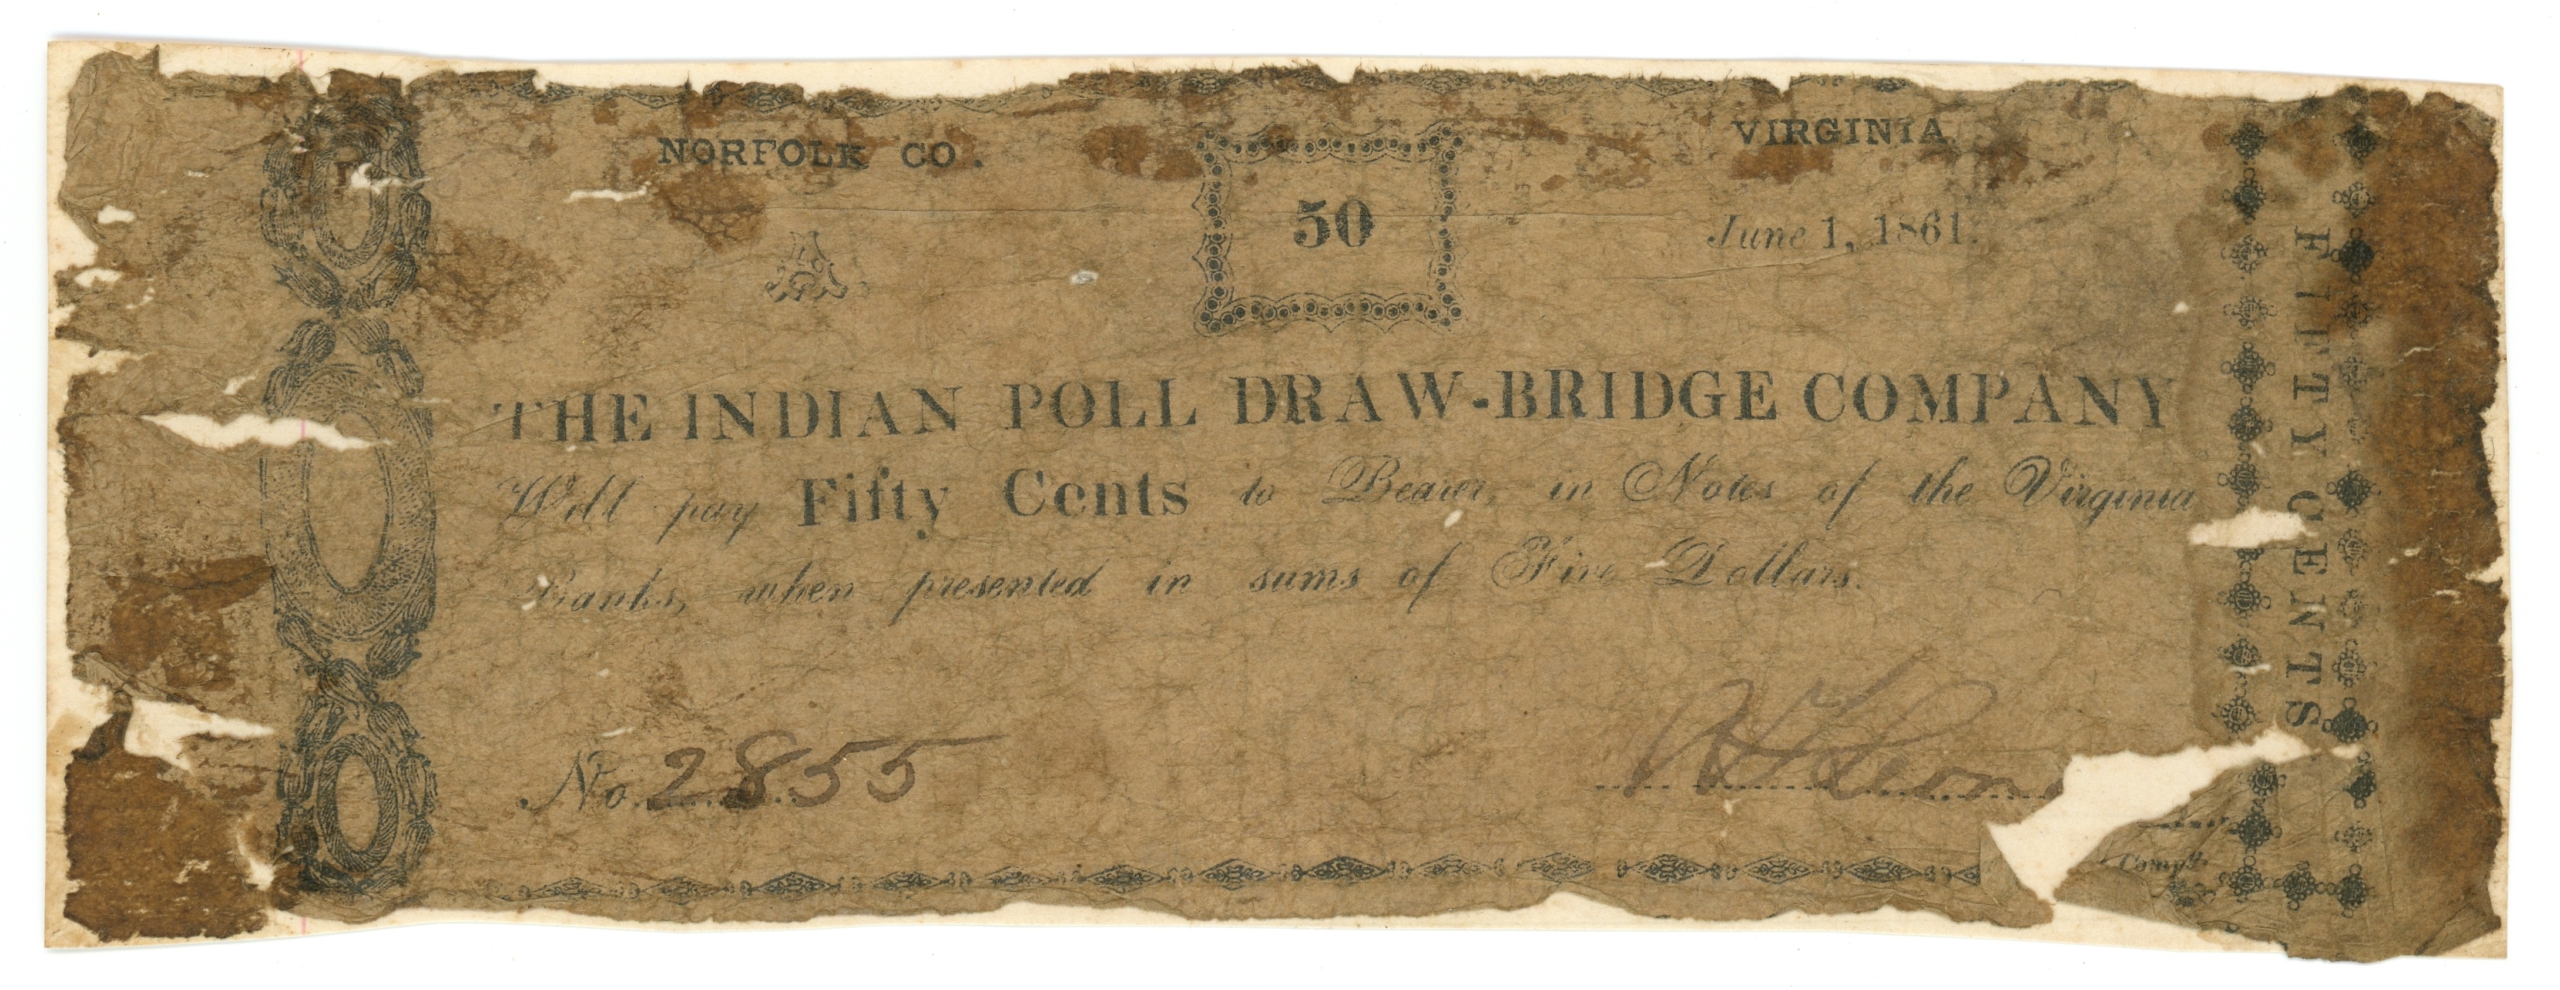 NORFOLK CO.
VIRGINIA
A
50
June 1, 1861.
THE INDIAN POLL DRAW-BRIDGE COMPANY
Will pay Fifty Cents to Bearer, in Notes of the Virginia
Banks, when presented in sums of Five Dollars.
No. 2855
Comp'y.
FIFTY CENTS